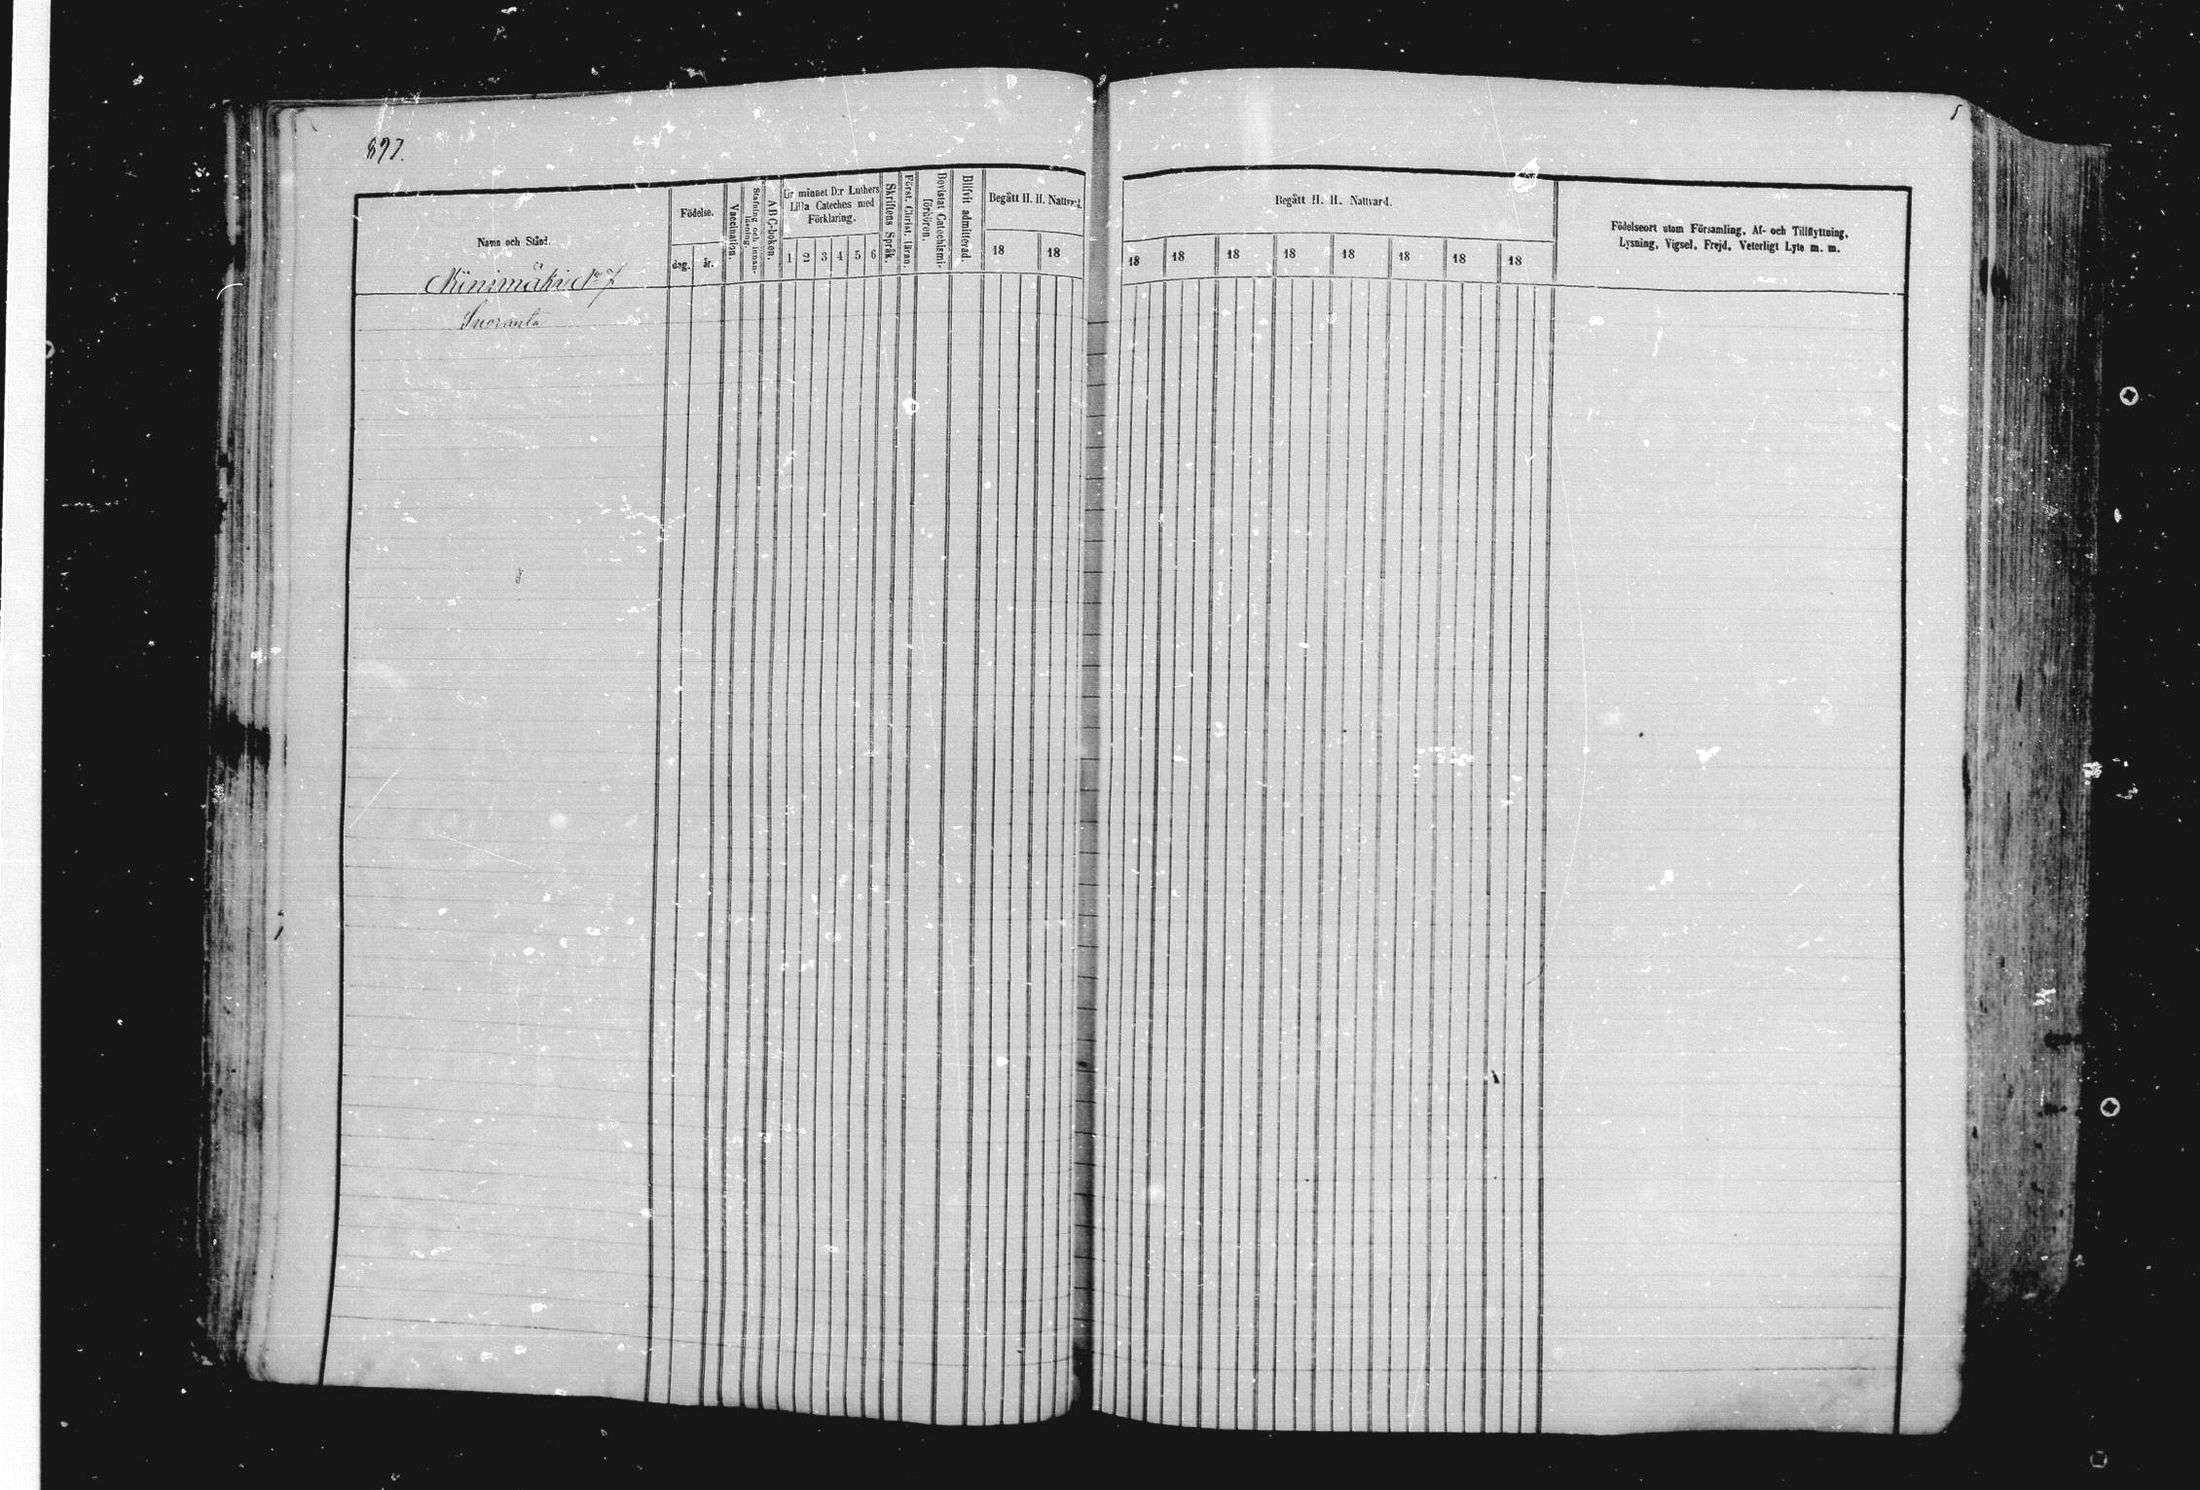 897.
Namn och Stånd.
Födelse.
dag.
år.
Vaccination.
Stafning och Innan-
läsning.
A B C-boken.
Ur minnet D:r Luthers
Lilla Cateches med
Förklaring.
1 2 3 4 5 6
Skriftens Språk.
Först. Christ. läran.
Bevistat Catechismi-
förhören.
Blifvit admitterad.
Begått H. H. Nattvard.
18 18
Niinimäki No 7
Suoranta
Begått H. H. Nattvard.
18 18 18 18 18 18 18 18
Födelseort utom Församling, Af- och Tillflyttning,
Lysning, Vigsel, Frejd, Veterligt Lyte m. m.